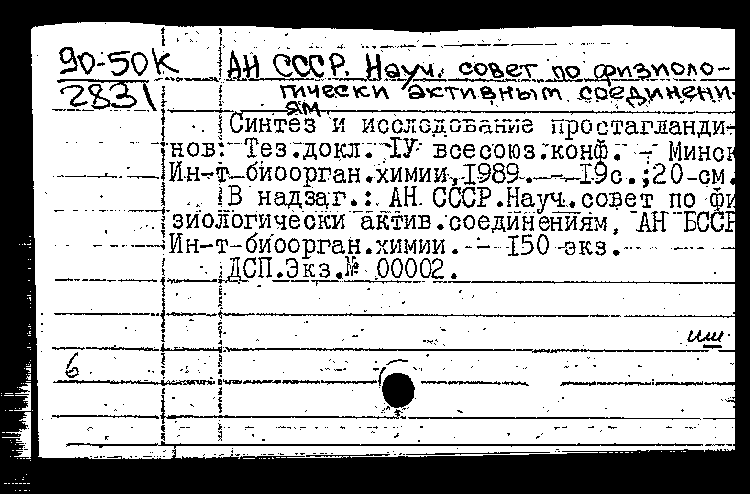 90-50К АН СССР. Науч. совет по физиоло-
2831 гически активным соединени-
ям
Синтез и исследование простагланди-
нов: Тез.докл. IУ всесоюз.конф. - Минск
Ин-т биоорган.химии, 1989. - 19с.;20 см.
В надзаг.: АН СССР.Науч.совет по фи
зиологически актив.соединениям, АН БССР
Ин-т биоорган.химии. - 150 экз.
ДСП.Экз.№ 00002.
6